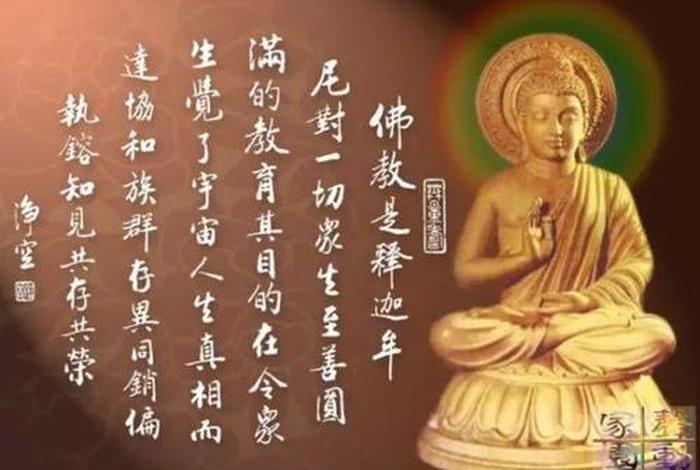 佛教是釋迦牟
尼對一切眾生至善圓
滿的教育其目的在令眾
生覺了宇宙人生真相而
達協和族群存異同銷偏
執鎔知見共存共榮
淨空